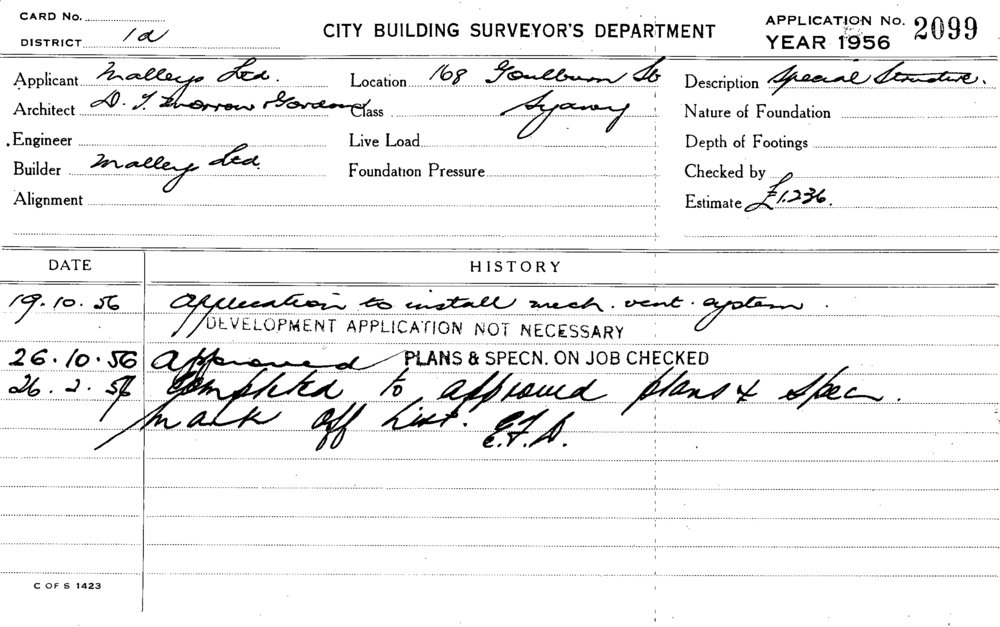 CARD No.
DISTRICT 1a
CITY BUILDING SURVEYOR'S DEPARTMENT
APPLICATION No. 2099
YEAR 1956
Applicant Malleys Ltd.
Location 168 Goulburn St
Description Special Structure.
Architect D. T. Morrow Gordon
Class Sydney
Nature of Foundation
Engineer
Live Load
Depth of Footings
Builder Malleys Ltd.
Foundation Pressure
Checked by
Alignment
Estimate £1,236.
DATE HISTORY
19.10.56 Application to install mech. vent. system.
DEVELOPMENT APPLICATION NOT NECESSARY
26.10.56 Approved PLANS & SPECN. ON JOB CHECKED
26.2.57 Completed to approved plans & Specn.
Mark off List. E.F.D.
C OF S 1423